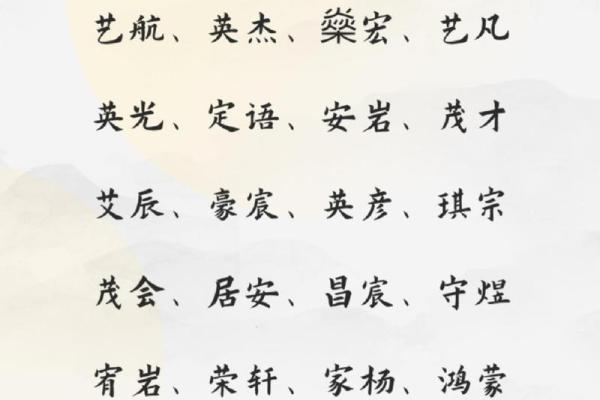 艺航、英杰、燊宏、艺凡
英光、定语、安岩、茂才
艾辰、豪宸、英彦、琪宗
茂会、居安、昌宸、守煜
宥岩、荣轩、家杨、鸿蒙